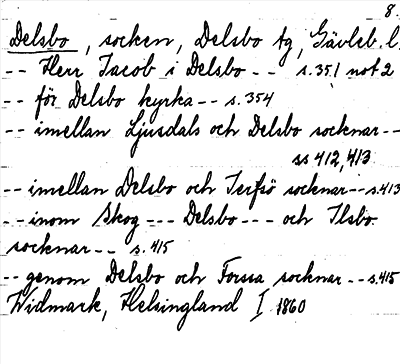 8.
Delsbo, socken, Delsbo tg, Gävleb. l.
-- Herr Jacob i Delsbo -- s. 351 not 2
-- för Delsbo kyrka -- s. 354
-- imellan Ljusdals och Delsbo socknar --
ss 412, 413
-- imellan Delsbo och Jerfsö socknar -- s. 413
-- inom Skog --- Delsbo --- och Ilsbo
socknar -- s. 415
-- genom Delsbo och Forssa socknar -- s. 415
Widmark, Helsingland I 1860